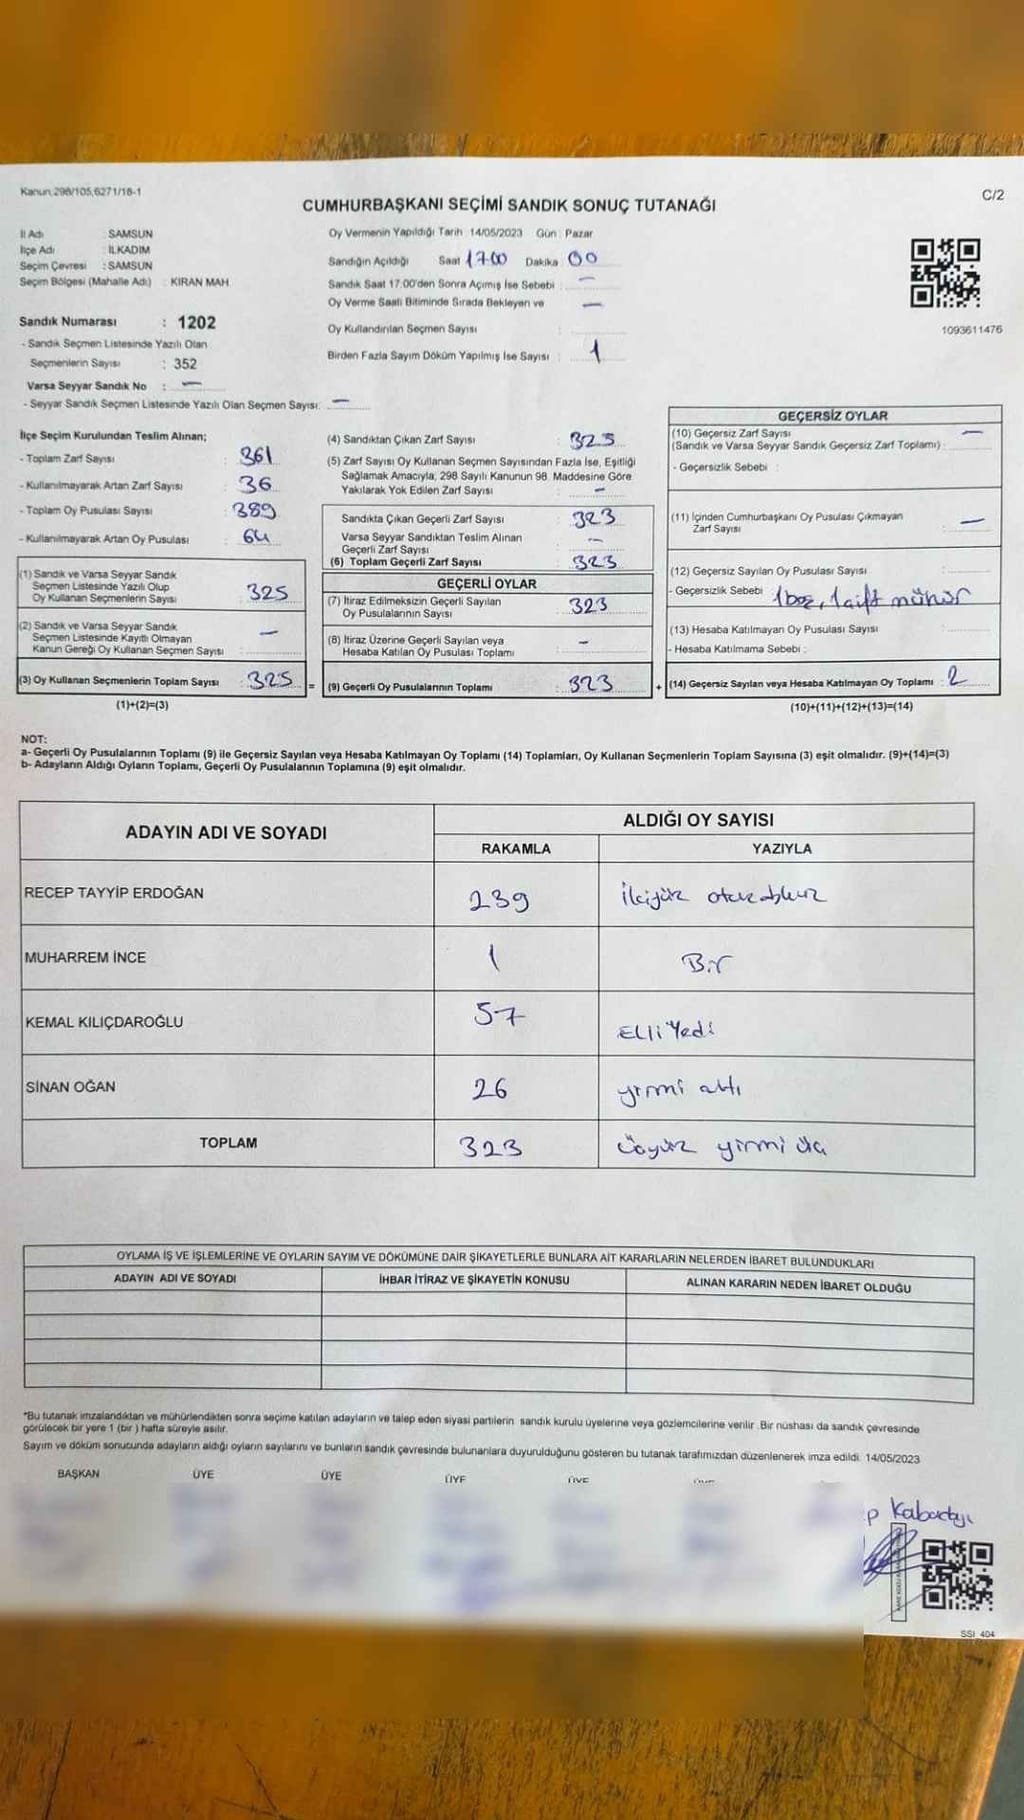 Kanun,298/105,6271/18-1
C/2
CUMHURBAŞKANI SEÇİMİ SANDIK SONUÇ TUTANAĞI
İl Adı : SAMSUN
İlçe Adı : İLKADIM
Seçim Çevresi : SAMSUN
Seçim Bölgesi (Mahalle Adı) : KIRAN MAH.
Sandık Numarası : 1202
- Sandık Seçmen Listesinde Yazılı Olan
Seçmenlerin Sayısı : 352
Varsa Seyyar Sandık No : —
- Seyyar Sandık Seçmen Listesinde Yazılı Olan Seçmen Sayısı: —
Oy Vermenin Yapıldığı Tarih 14/05/2023 Gün : Pazar
Sandığın Açıldığı Saat 17:00 Dakika 00
Sandık Saat 17.00'den Sonra Açımış İse Sebebi : —
Oy Verme Saati Bitiminde Sırada Bekleyen ve —
Oy Kullandırılan Seçmen Sayısı :
Birden Fazla Sayım Döküm Yapılmış İse Sayısı : 1
1093611476
İlçe Seçim Kurulundan Teslim Alınan;
- Toplam Zarf Sayısı : 361
- Kullanılmayarak Artan Zarf Sayısı : 36
- Toplam Oy Pusulası Sayısı : 389
- Kullanılmayarak Artan Oy Pusulası : 64
(1) Sandık ve Varsa Seyyar Sandık
Seçmen Listesinde Yazılı Olup
Oy Kullanan Seçmenlerin Sayısı : 325
(2) Sandık ve Varsa Seyyar Sandık
Seçmen Listesinde Kayıtlı Olmayan
Kanun Gereği Oy Kullanan Seçmen Sayısı : —
(3) Oy Kullanan Seçmenlerin Toplam Sayısı : 325
(1)+(2)=(3)
(4) Sandıktan Çıkan Zarf Sayısı : 325
(5) Zarf Sayısı Oy Kullanan Seçmen Sayısından Fazla İse, Eşitliği
Sağlamak Amacıyla, 298 Sayılı Kanunun 98. Maddesine Göre
Yakılarak Yok Edilen Zarf Sayısı : —
Sandıkta Çıkan Geçerli Zarf Sayısı : 323
Varsa Seyyar Sandıktan Teslim Alınan
Geçerli Zarf Sayısı : —
(6) Toplam Geçerli Zarf Sayısı : 323
GEÇERLİ OYLAR
(7) İtiraz Edilmeksizin Geçerli Sayılan
Oy Pusulalarının Sayısı : 323
(8) İtiraz Üzerine Geçerli Sayılan veya
Hesaba Katılan Oy Pusulası Toplamı : —
= (9) Geçerli Oy Pusulalarının Toplamı : 323
GEÇERSİZ OYLAR
(10) Geçersiz Zarf Sayısı
(Sandık ve Varsa Seyyar Sandık Geçersiz Zarf Toplamı) : —
- Geçersizlik Sebebi :
(11) İçinden Cumhurbaşkanı Oy Pusulası Çıkmayan
Zarf Sayısı : —
(12) Geçersiz Sayılan Oy Pusulası Sayısı :
- Geçersizlik Sebebi : 1 boş, 1 çift mühür
(13) Hesaba Katılmayan Oy Pusulası Sayısı :
- Hesaba Katılmama Sebebi :
+ (14) Geçersiz Sayılan veya Hesaba Katılmayan Oy Toplamı : 2
(10)+(11)+(12)+(13)=(14)
NOT:
a- Geçerli Oy Pusulalarının Toplamı (9) ile Geçersiz Sayılan veya Hesaba Katılmayan Oy Toplamı (14) Toplamları, Oy Kullanan Seçmenlerin Toplam Sayısına (3) eşit olmalıdır. (9)+(14)=(3)
b- Adayların Aldığı Oyların Toplamı, Geçerli Oy Pusulalarının Toplamına (9) eşit olmalıdır.
ADAYIN ADI VE SOYADI
ALDIĞI OY SAYISI
RAKAMLA YAZIYLA
RECEP TAYYİP ERDOĞAN 239 İkiyüz otuzdokuz
MUHARREM İNCE 1 Bir
KEMAL KILIÇDAROĞLU 57 Elli Yedi
SİNAN OĞAN 26 yirmi altı
TOPLAM 323 üçyüz yirmi üç
OYLAMA İŞ VE İŞLEMLERİNE VE OYLARIN SAYIM VE DÖKÜMÜNE DAİR ŞİKAYETLERLE BUNLARA AİT KARARLARIN NELERDEN İBARET BULUNDUKLARI
ADAYIN ADI VE SOYADI İHBAR İTİRAZ VE ŞİKAYETİN KONUSU ALINAN KARARIN NEDEN İBARET OLDUĞU
*Bu tutanak imzalandıktan ve mühürlendikten sonra seçime katılan adayların ve talep eden siyasi partilerin sandık kurulu üyelerine veya gözlemcilerine verilir. Bir nüshası da sandık çevresinde
görülecek bir yere 1 (bir ) hafta süreyle asılır.
Sayım ve döküm sonucunda adayların aldığı oyların sayılarını ve bunların sandık çevresinde bulunanlara duyurulduğunu gösteren bu tutanak tarafımızdan düzenlenerek imza edildi. 14/05/2023
BAŞKAN ÜYE ÜYE ÜYE ÜYE
p Kabadayı
SSI_404